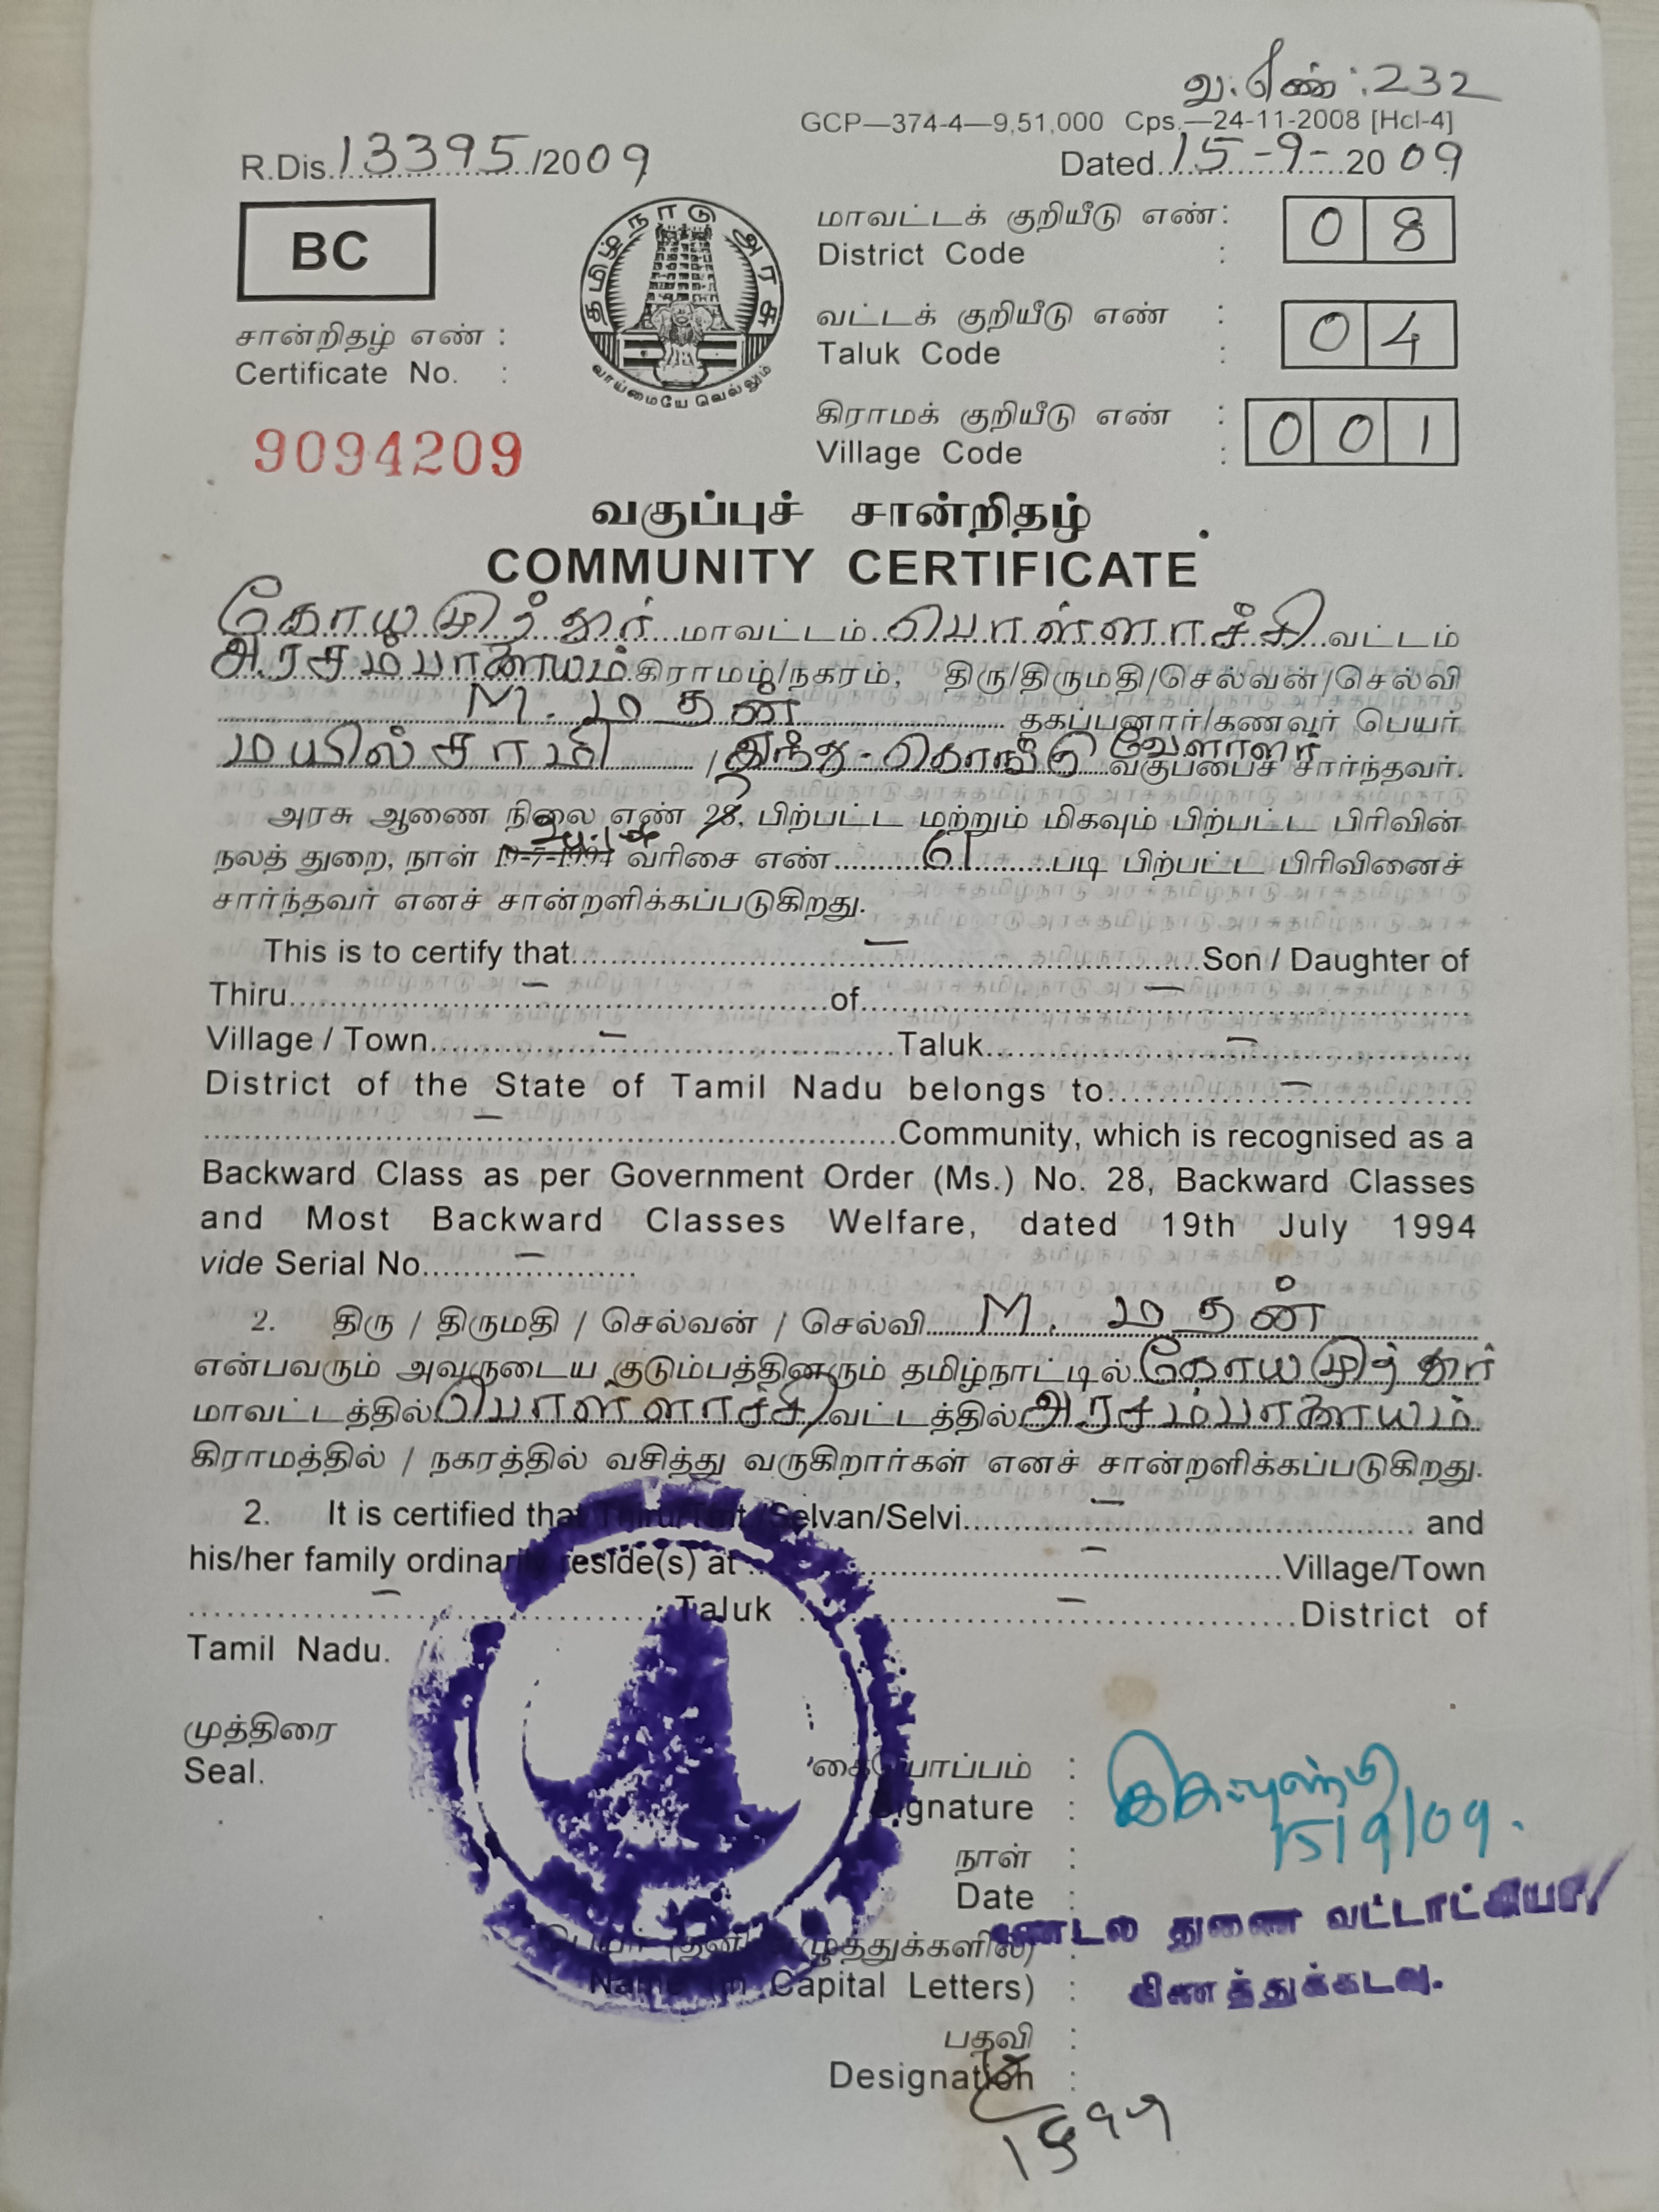 வ.எண்:232
GCP—374-4—9,51,000 Cps.—24-11-2008 [Hcl-4]
R.Dis.13395/2009
Dated.15-9-2009
BC
தமிழ்நாடு அரசு
வாய்மையே வெல்லும்
மாவட்டக் குறியீடு எண் : 08
District Code :
வட்டக் குறியீடு எண் : 04
Taluk Code :
கிராமக் குறியீடு எண் : 001
Village Code :
சான்றிதழ் எண் :
Certificate No. :
9094209
வகுப்புச் சான்றிதழ்
COMMUNITY CERTIFICATE
கோயமுத்தூர் மாவட்டம் பொள்ளாச்சி வட்டம்
அரசம்பாளையம் கிராமம்/நகரம், திரு/திருமதி/செல்வன்/செல்வி
M. மதன் தகப்பனார்/கணவர் பெயர்
மயில்சாமி / இந்து-கொங்கு வேளாளர் வகுப்பைச் சார்ந்தவர்.
அரசு ஆணை நிலை எண் 28, பிற்பட்ட மற்றும் மிகவும் பிற்பட்ட பிரிவின்
நலத் துறை, நாள் 19-7-1994 வரிசை எண் படி பிற்பட்ட பிரிவினைச்
சார்ந்தவர் எனச் சான்றளிக்கப்படுகிறது.
This is to certify that – Son / Daughter of
Thiru – of –
Village / Town – Taluk –
District of the State of Tamil Nadu belongs to –
– Community, which is recognised as a
Backward Class as per Government Order (Ms.) No. 28, Backward Classes
and Most Backward Classes Welfare, dated 19th July 1994
vide Serial No. –
2. திரு / திருமதி / செல்வன் / செல்வி M. மதன்
என்பவரும் அவருடைய குடும்பத்தினரும் தமிழ்நாட்டில் கோயமுத்தூர்
மாவட்டத்தில் பொள்ளாச்சி வட்டத்தில் அரசம்பாளையம்
கிராமத்தில் / நகரத்தில் வசித்து வருகிறார்கள் எனச் சான்றளிக்கப்படுகிறது.
2. It is certified that Thiru/Tmt/Selvan/Selvi – and
his/her family ordinarily reside(s) at – Village/Town
– Taluk – District of
Tamil Nadu.
முத்திரை
Seal.
கையொப்பம் :
Signature :
15/9/09.
நாள் :
Date :
மண்டல துணை வட்டாட்சியர்
கிணத்துக்கடவு.
பெயர் (தனி எழுத்துக்களில்) :
Name (in Capital Letters) :
பதவி :
Designation :